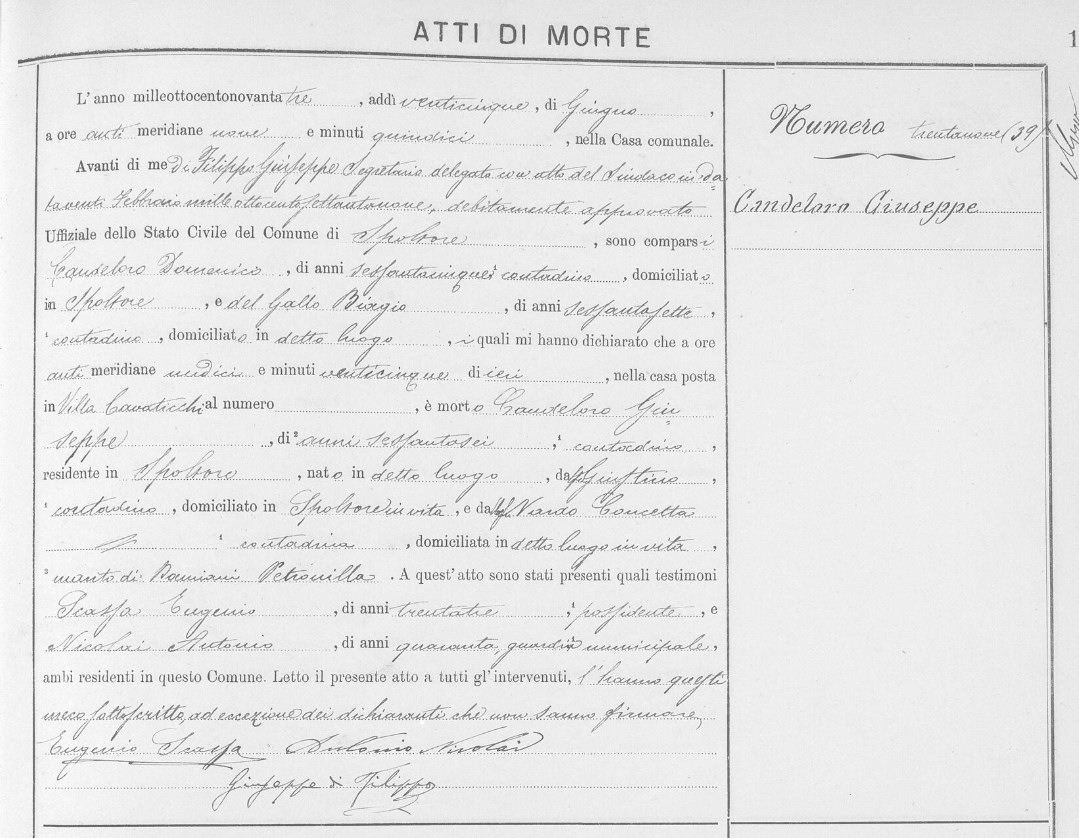 ATTI DI MORTE
1
L'anno milleottocentonovantatre, addì venticinque, di Giugno,
a ore anti meridiane nove e minuti quindici, nella Casa comunale.
Avanti di me Di Filippo Giuseppe Segretario delegato con atto del Sindaco in da=
ta venti Febbraio mille ottocento settantanove, debitamente approvato
Uffiziale dello Stato Civile del Comune di Spoltore, sono comparsi
Candeloro Domenico, di anni sessantacinque, contadino, domiciliato
in Spoltore, e del Gallo Biagio, di anni sessantasette,
contadino, domiciliato in detto luogo, i quali mi hanno dichiarato che a ore
anti meridiane undici e minuti venticinque di ieri, nella casa posta
in Villa Cavaticchi al numero, è morto Candeloro Giu=
seppe, di anni sessantasei, contadino,
residente in Spoltore, nato in detto luogo, da fu Giustino,
contadino, domiciliato in Spoltore in vita, e da fu Nardo Concetta
contadina, domiciliata in detto luogo in vita,
marito di: Damiani Petronilla. A quest'atto sono stati presenti quali testimoni
Scassa Eugenio, di anni trentatre, possidente, e
Nicolai Antonio, di anni quaranta, guardia municipale,
ambi residenti in questo Comune. Letto il presente atto a tutti gl'intervenuti, l'hanno questi
meco sottoscritto, ad eccezione dei dichiaranti che non sanno firmare,
Eugenio Scassa Antonio Nicolai
Giuseppe di Filippo
Numero trentanove (39)
Candeloro Giuseppe